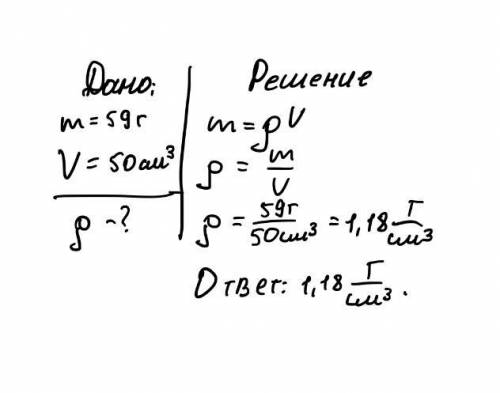 Дано:
m = 59г
V = 50см³
ρ - ?
Решение
m = ρV
ρ = m/V
ρ = 59г/50см³ = 1,18 г/см³
Ответ: 1,18 г/см³.